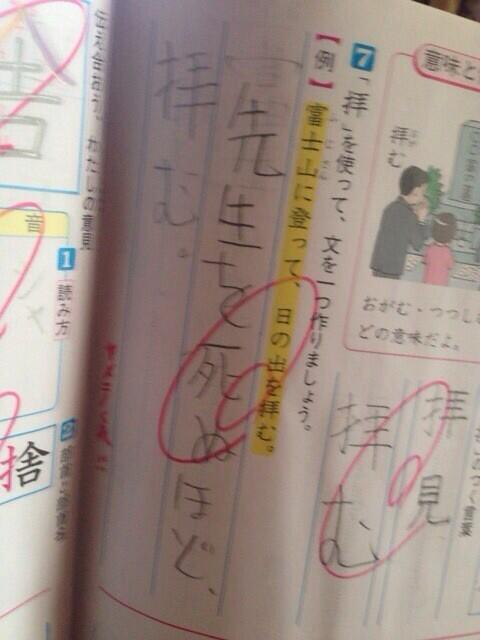 意味と
拝む
おがむ・つつし
どの意味だよ。
拝見
拝む
7 「拝」を使って、文を一つ作りましょう。
【例】富士山に登って、日の出を拝む。
先生を死ぬほど、
拝む。
伝え合おう、わたしの意見
音
1 読み方
捨